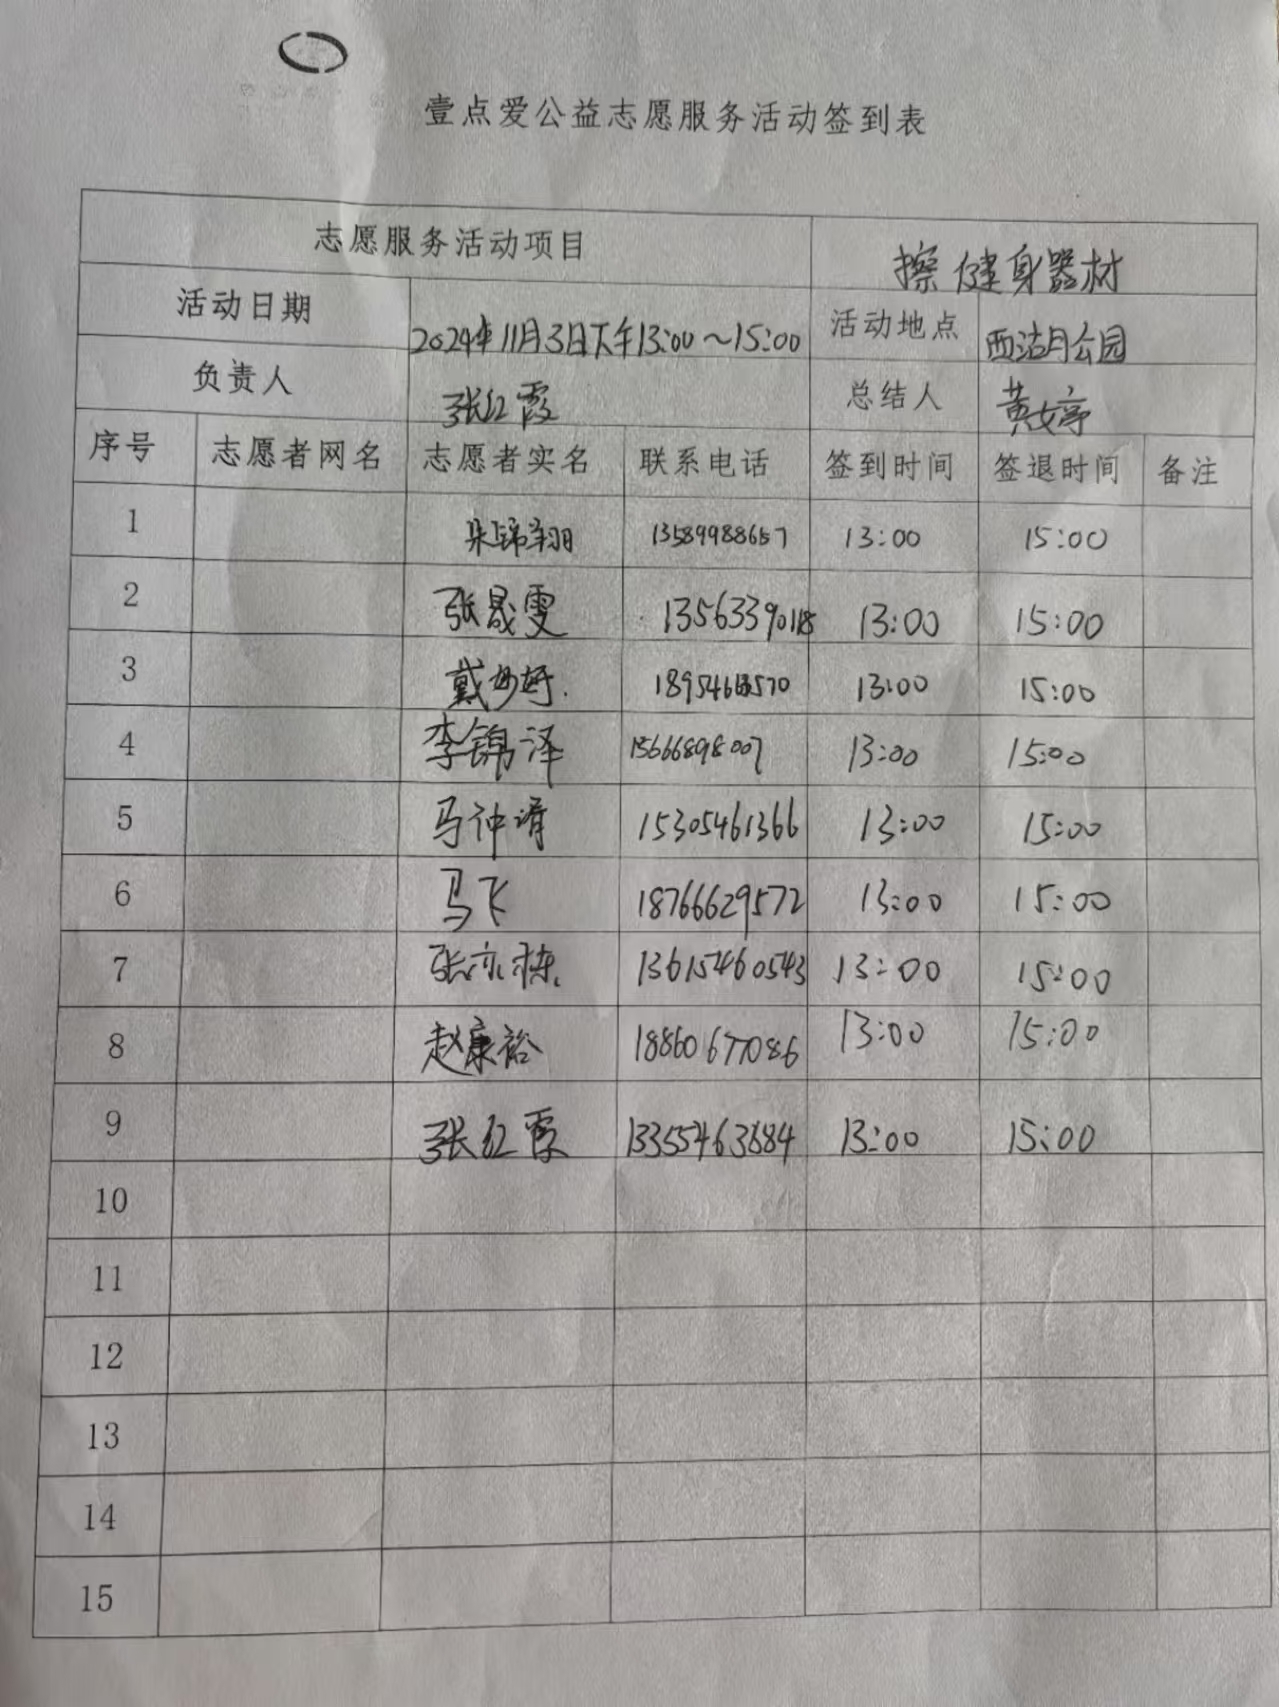 壹点爱公益志愿服务活动签到表
志愿服务活动项目 擦健身器材
活动日期 2024年11月3日下午13:00~15:00 活动地点 西湖月公园
负责人 张红霞 总结人 黄女亭
序号 志愿者网名 志愿者实名 联系电话 签到时间 签退时间 备注
1 朱锦翔 13589988657 13:00 15:00
2 张晟雯 13563390118 13:00 15:00
3 戴 13:00 15:00
4 李锦泽 15666898007 13:00 15:00
5 马仲谞 15305461366 13:00 15:00
6 马飞 18766629572 13:00 15:00
7 张亦栋 13615460543 13:00 15:00
8 赵康裕 18860677086 13:00 15:00
9 张红霞 13355463684 13:00 15:00
10
11
12
13
14
15